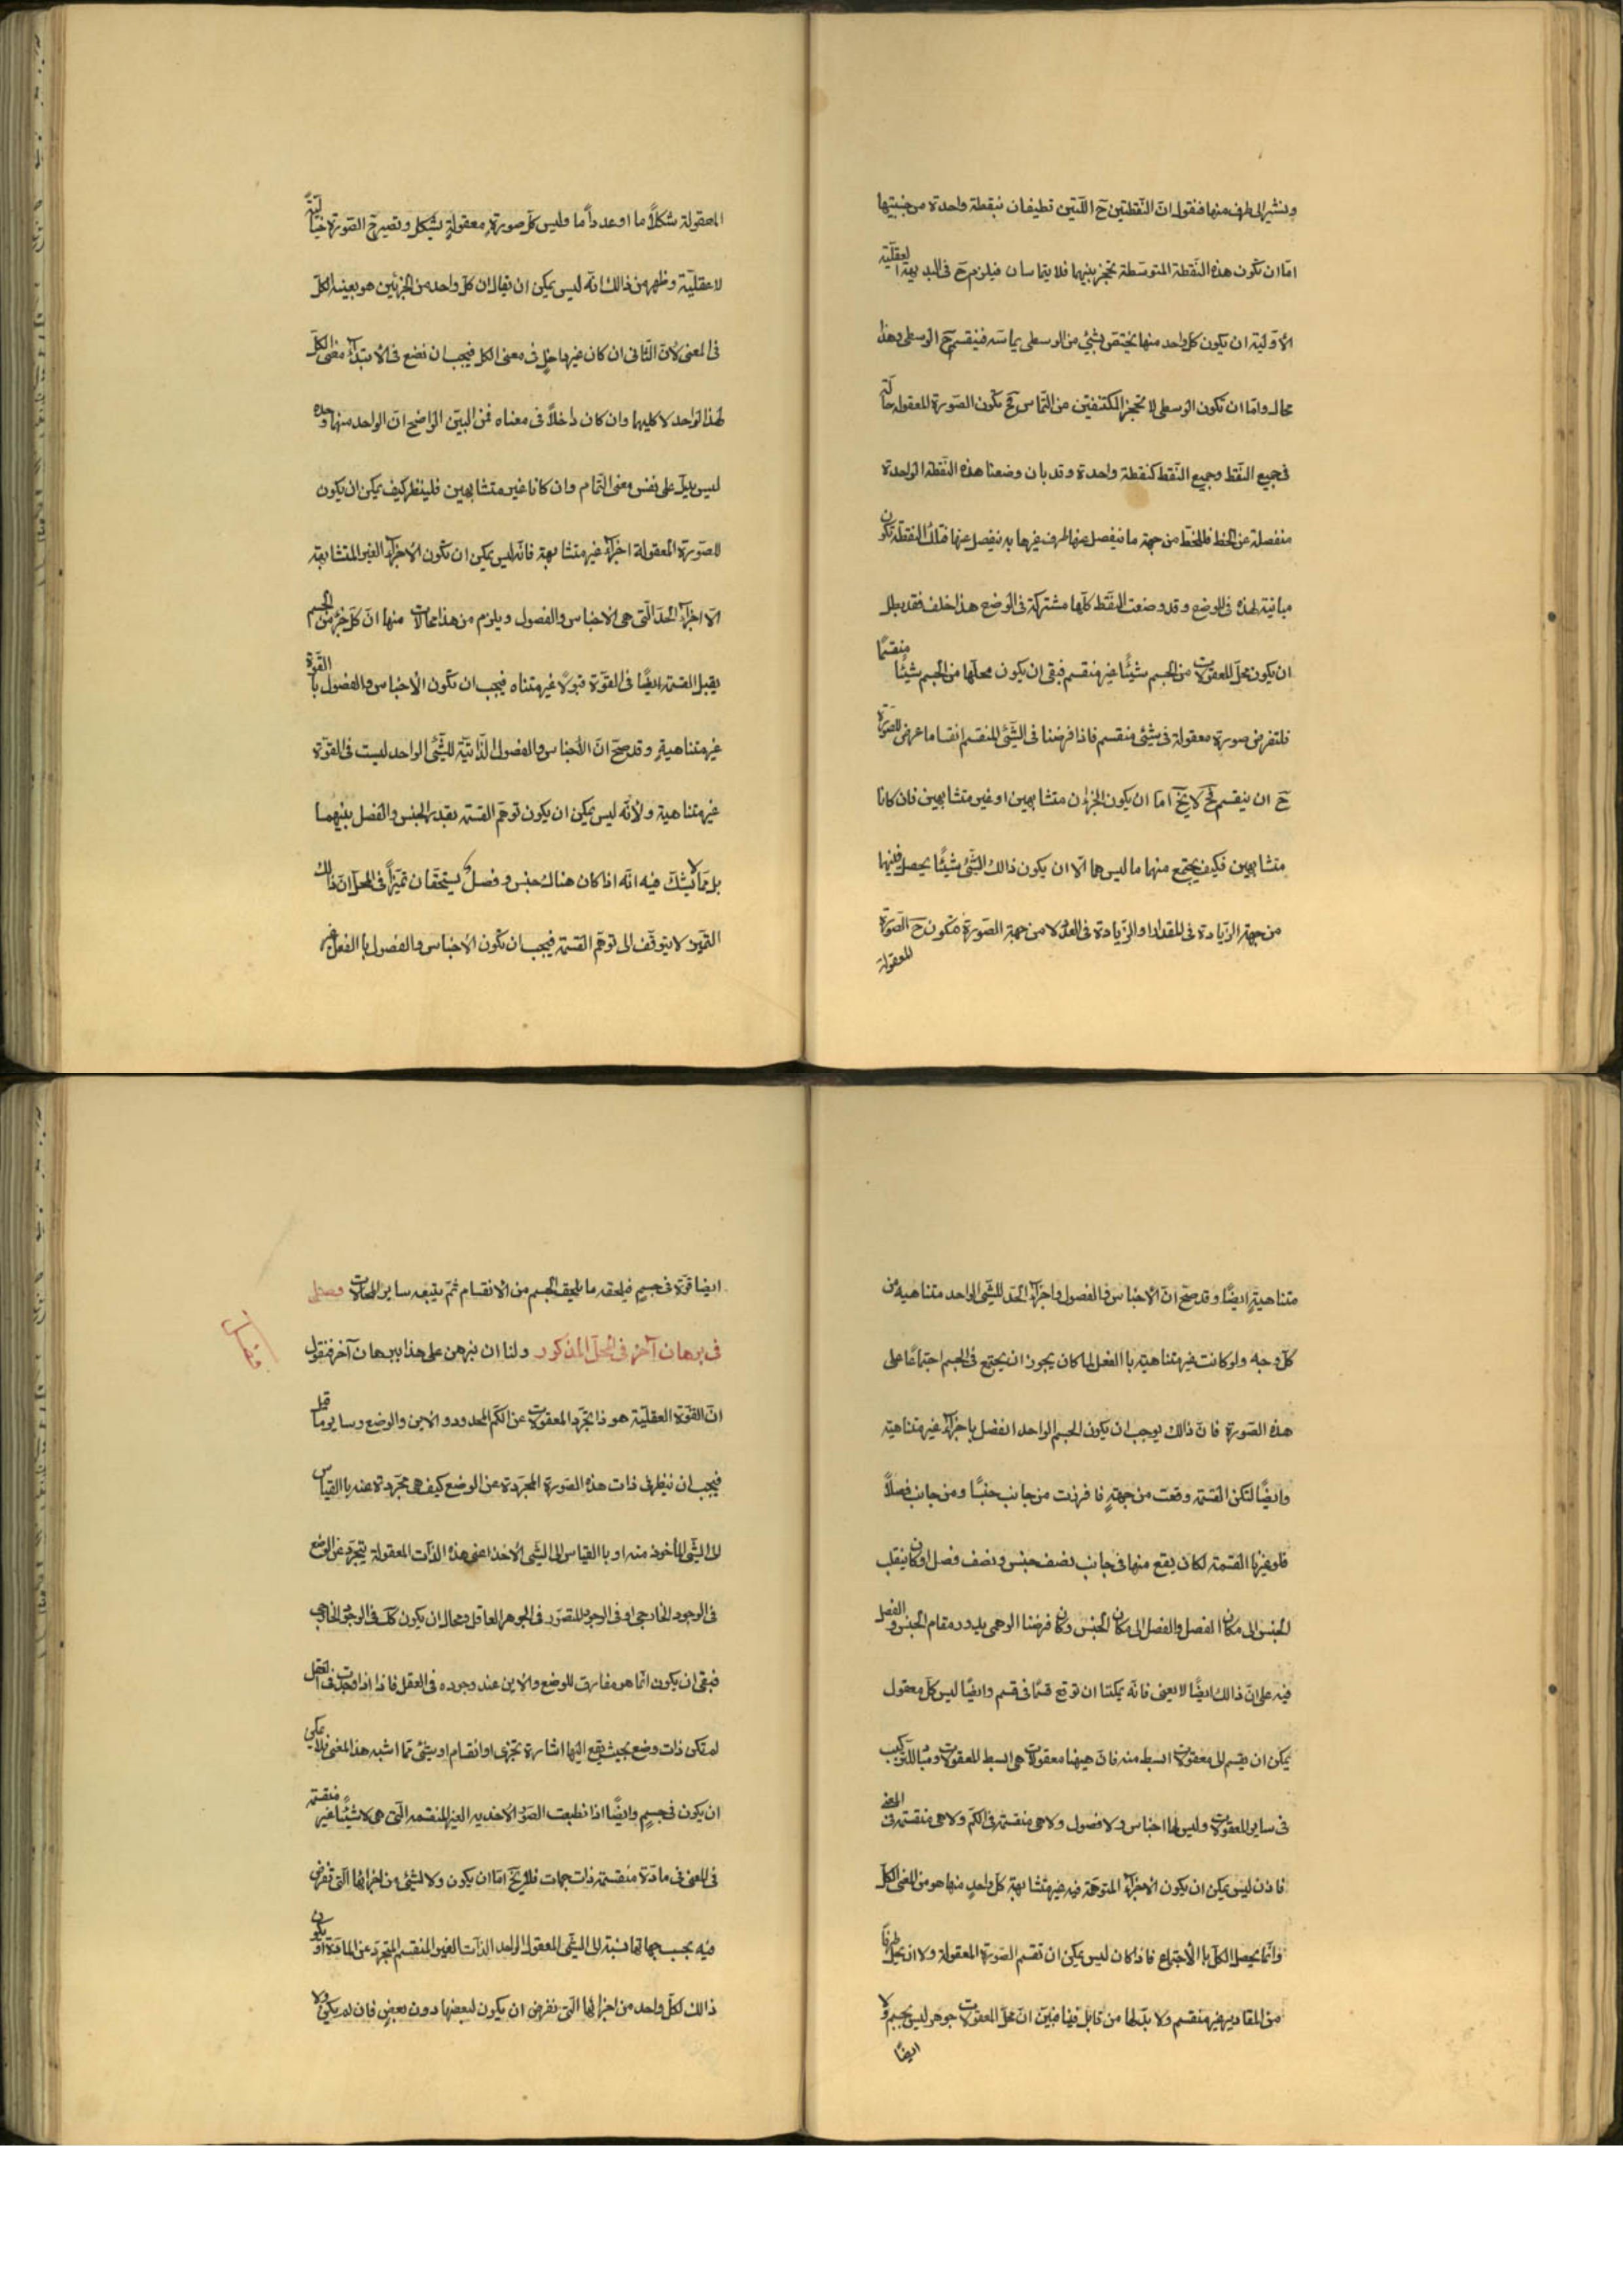 ونشير الى طرف منها فنقول ان النّقطتين ح اللّتين تطيفان بنقطة واحدة من جنبتيها
امّا ان تكون هذه النّقطة المتوسّطة تحجز بينهما فلا يتماسان فيلزم ح فى البديهة العقليّة
الأوّلية ان يكون كل واحد منها يختصّ بشئ من الوسطى يماسّه فينقسم ح الوسطى وهذا
محال وامّا ان تكون الوسطى لا تحجز المكتنفتين عن التّماس فح تكون الصّورة المعقولة حالّة
فى جميع النّقط وجميع النّقط كنقطة واحدة وقد بان وضعنا هذه النّقطة الواحدة
منفصلة عن الخط فللخط من جهة ما ينفصل عنها طرف غيرها به ينفصل عنها فتلك النقطة تكون
مباينة لهذه فى الوضع وقد وضعت النّقط كلّها مشتركة فى الوضع هذا خلف فقد بطل
ان يكون محلّ المعقولات من الجسم شيئًا غير منقسم فبقى ان يكون محلّها من الجسم شيئًا منقسمًا
فلنفرض صورة معقولة فى شئ منقسم فاذا فرضنا فى الشّئ المنقسم انقساما عرض للصّورة
ح ان ينقسم فح لا يخ امّا ان يكون الجزءان متشابهين او غير متشابهين فان كانا
متشابهين فكيف يجتمع منهما ما ليس هما الّا ان يكون ذالك الشّئ شيئًا يحصل فيهما
من جهة الزّيادة فى المقدار او الزّيادة فى العدد لا من جهة الصّورة فتكون ح الصّورة
المعقولة
المعقولة شكلًا ما او عدداً ما وليس كلّ صورة معقولةٍ بشكل وتصير ح الصّورة خياليّةً
لا عقليّة وظهر من ذالك انّه ليس يمكن ان يقال ان كلّ واحد من الجزئين هو بعينه الكلّ
فى المعنى لأنّ الثّانى ان كان غير داخلٍ فى معنى الكل فيجب ان نضع فى الابتداء معنى الكلّ
لهذا الواحد لا كليهما وان كان داخلًا فى معناه فمن البيّن الواضح انّ الواحد منهما وحده
ليس يدلّ على نفس معنى التّمام وان كانا غير متشابهين فلينظر كيف يمكن ان يكون
للصّورة المعقولة اجزآء غير متشابهة فانّه ليس يمكن ان تكون الأجزآء الغير المتشابهة
الّا اجزآء الحدّ الّتى هى الاجناس والفصول ويلزم من هذا محالات منها انّ كلّ جزء من الجسم
يقبل القسمة ايضًا فى القوّة قبولًا غير متناه فيجب ان تكون الأجناس والفصول بالقوّة
غير متناهيةٍ وقد صحّ انّ الأجناس والفصول الذّاتيّة للشّئ الواحد ليست فى القوّة
غير متناهية ولأنّه ليس يمكن ان يكون توهّم القسمة بقدر الجنس والفصل بينهما
بل ممّا لا يشكّ فيه انّه اذا كان هناك جنس وفصل يستحقّان تميّزاً فى المحلّ انّ ذالك
التّميّز لا يتوقّف الى توهّم القسمة فيجب ان تكون الأجناس والفصول باالفعل غير
متناهيةٍ ايضًا وقد صحّ انّ الأجناس والفصول واجزآء الحدّ للشّئ الواحد متناهية من
كلّ وجه ولو كانت غير متناهية باالفعل لما كان يجوز ان يجتمع فى الجسم اجتماعًا على
هذه الصّورة فانّ ذالك يوجب ان يكون الجسم الواحد انفصل باجزآء غير متناهية
وايضًا لتكن القسمة وقعت من جهةٍ فافرزت من جانب جنسًا ومن جانب فصلًا
فلو غيّرنا القسمة لكان يقع منها فى جانب نصف جنس ونصف فصل او كان ينقلب
الجنس الى مكان الفصل والفصل الى مكان الجنس وكان فرضنا الوهمى يدور مقام الجنس والفصل
فيه على انّ ذالك ايضًا لا يغنى فانّه يمكننا ان نوقع قسمًا فى قسم وايضًا ليس كلّ معقول
يمكن ان يقسم الى معقولات ابسط منه فانّ هيهنا معقولات هى ابسط المعقولات ومبادٍ للتركيب
فى ساير المعقولات وليس لها اجناس ولا فصول ولا هى منقسمة فى الكمّ ولا هى منقسمة فى المعنى
فاذن ليس يمكن ان يكون الاجزآء المتوهّمة فيه غير متشابهة كلّ واحدٍ منها هو من المعنى الكلّ
وانّما يحصل الكلّ باالأجتماع فاذا كان ليس يمكن ان تقسم الصّورة المعقولة ولا ان يحلّ طرفًا
من المقادير غير منقسم ولا بدّ لها من قابل فينا فبيّن انّ محلّ المعقولات جوهر ليس بجسم ولا
ايضًا
ايضا قوّة فى جسمٍ فيلحقه ما يلحق الجسم من الأنقسام ثمّ يتبعه ساير المحالات فصل
فى برهان آخر فى المحلّ المذكور ولنا ان نبرهن على هذا ببرهان آخر فنقول
فصل
انّ القوّة العقليّة هو ذا تجرّد المعقولات عن الكمّ المحدود والأين والوضع وساير ما قيل
فيجب ان ننظر فى ذات هذه الصّورة المجرّدة عن الوضع كيف هى مجرّدة عنه باالقياس
الى الشّئ المأخوذ منه او باالقياس الى الشّئ الآخذ اعنى هذه الذّات المعقولة يتجرّد عن الوضع
فى الوجود الخارجى او فى الوجود المتصوّر فى الجوهر العاقل ومحال ان يكون كك فى الوجود الخارجى
فبقى ان يكون انّما هو مفارق للوضع والأين عند وجوده فى العقل فاذا وجدت فى العقل
لم تكن ذات وضع بحيث يقع اليها اشارة تجزّى او انقسام او شئ ممّا اشبه هذا المعنى فلا يمكن
ان يكون فى جسمٍ وايضًا اذا انطبعت الصّورة الأحدية الغير المنقسمة الّتى هى لاشيئًا غير منقسمة
فى المعنى فى مادّة منقسمة ذات جهات فلا يخ امّا ان يكون ولا لشئ من اجزائها الّتى تفرض
فيه بحسب جهاتها نسبة الى الشّئ المعقول الواحد الذّات الغير المنقسم المتجرّد عن المادّة او يكون
ذالك لكلّ واحد من اجزائها الّتى نفرض ان يكون لبعضها دون بعضٍ فان لم يكن ولا